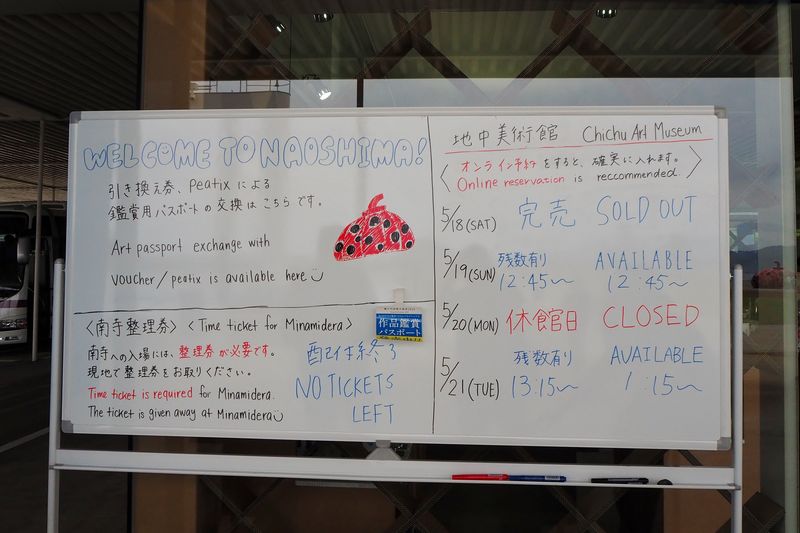 WELCOME TO NAOSHIMA!
引き換え券、peatix による
鑑賞用パスポートの交換はこちらです。
Art passport exchange with
voucher/peatix is available here
〈南寺整理券〉 〈Time ticket for Minamidera〉
南寺への入場には、整理券が必要です。
現地で整理券をお取りください。
Time ticket is required for Minamidera.
The ticket is given away at Minamidera
作品鑑賞
パスポート
配付終了
NO TICKETS
LEFT
地中美術館 Chichu Art Museum
オンライン予約をすると、確実に入れます。
Online reservation is reccommended.
5/18(SAT) 完売 SOLD OUT
5/19(SUN) 残数有り AVAILABLE
12:45〜 12:45〜
5/20(MON) 休館日 CLOSED
5/21(TUE) 残数有り AVAILABLE
13:15〜 1:15〜